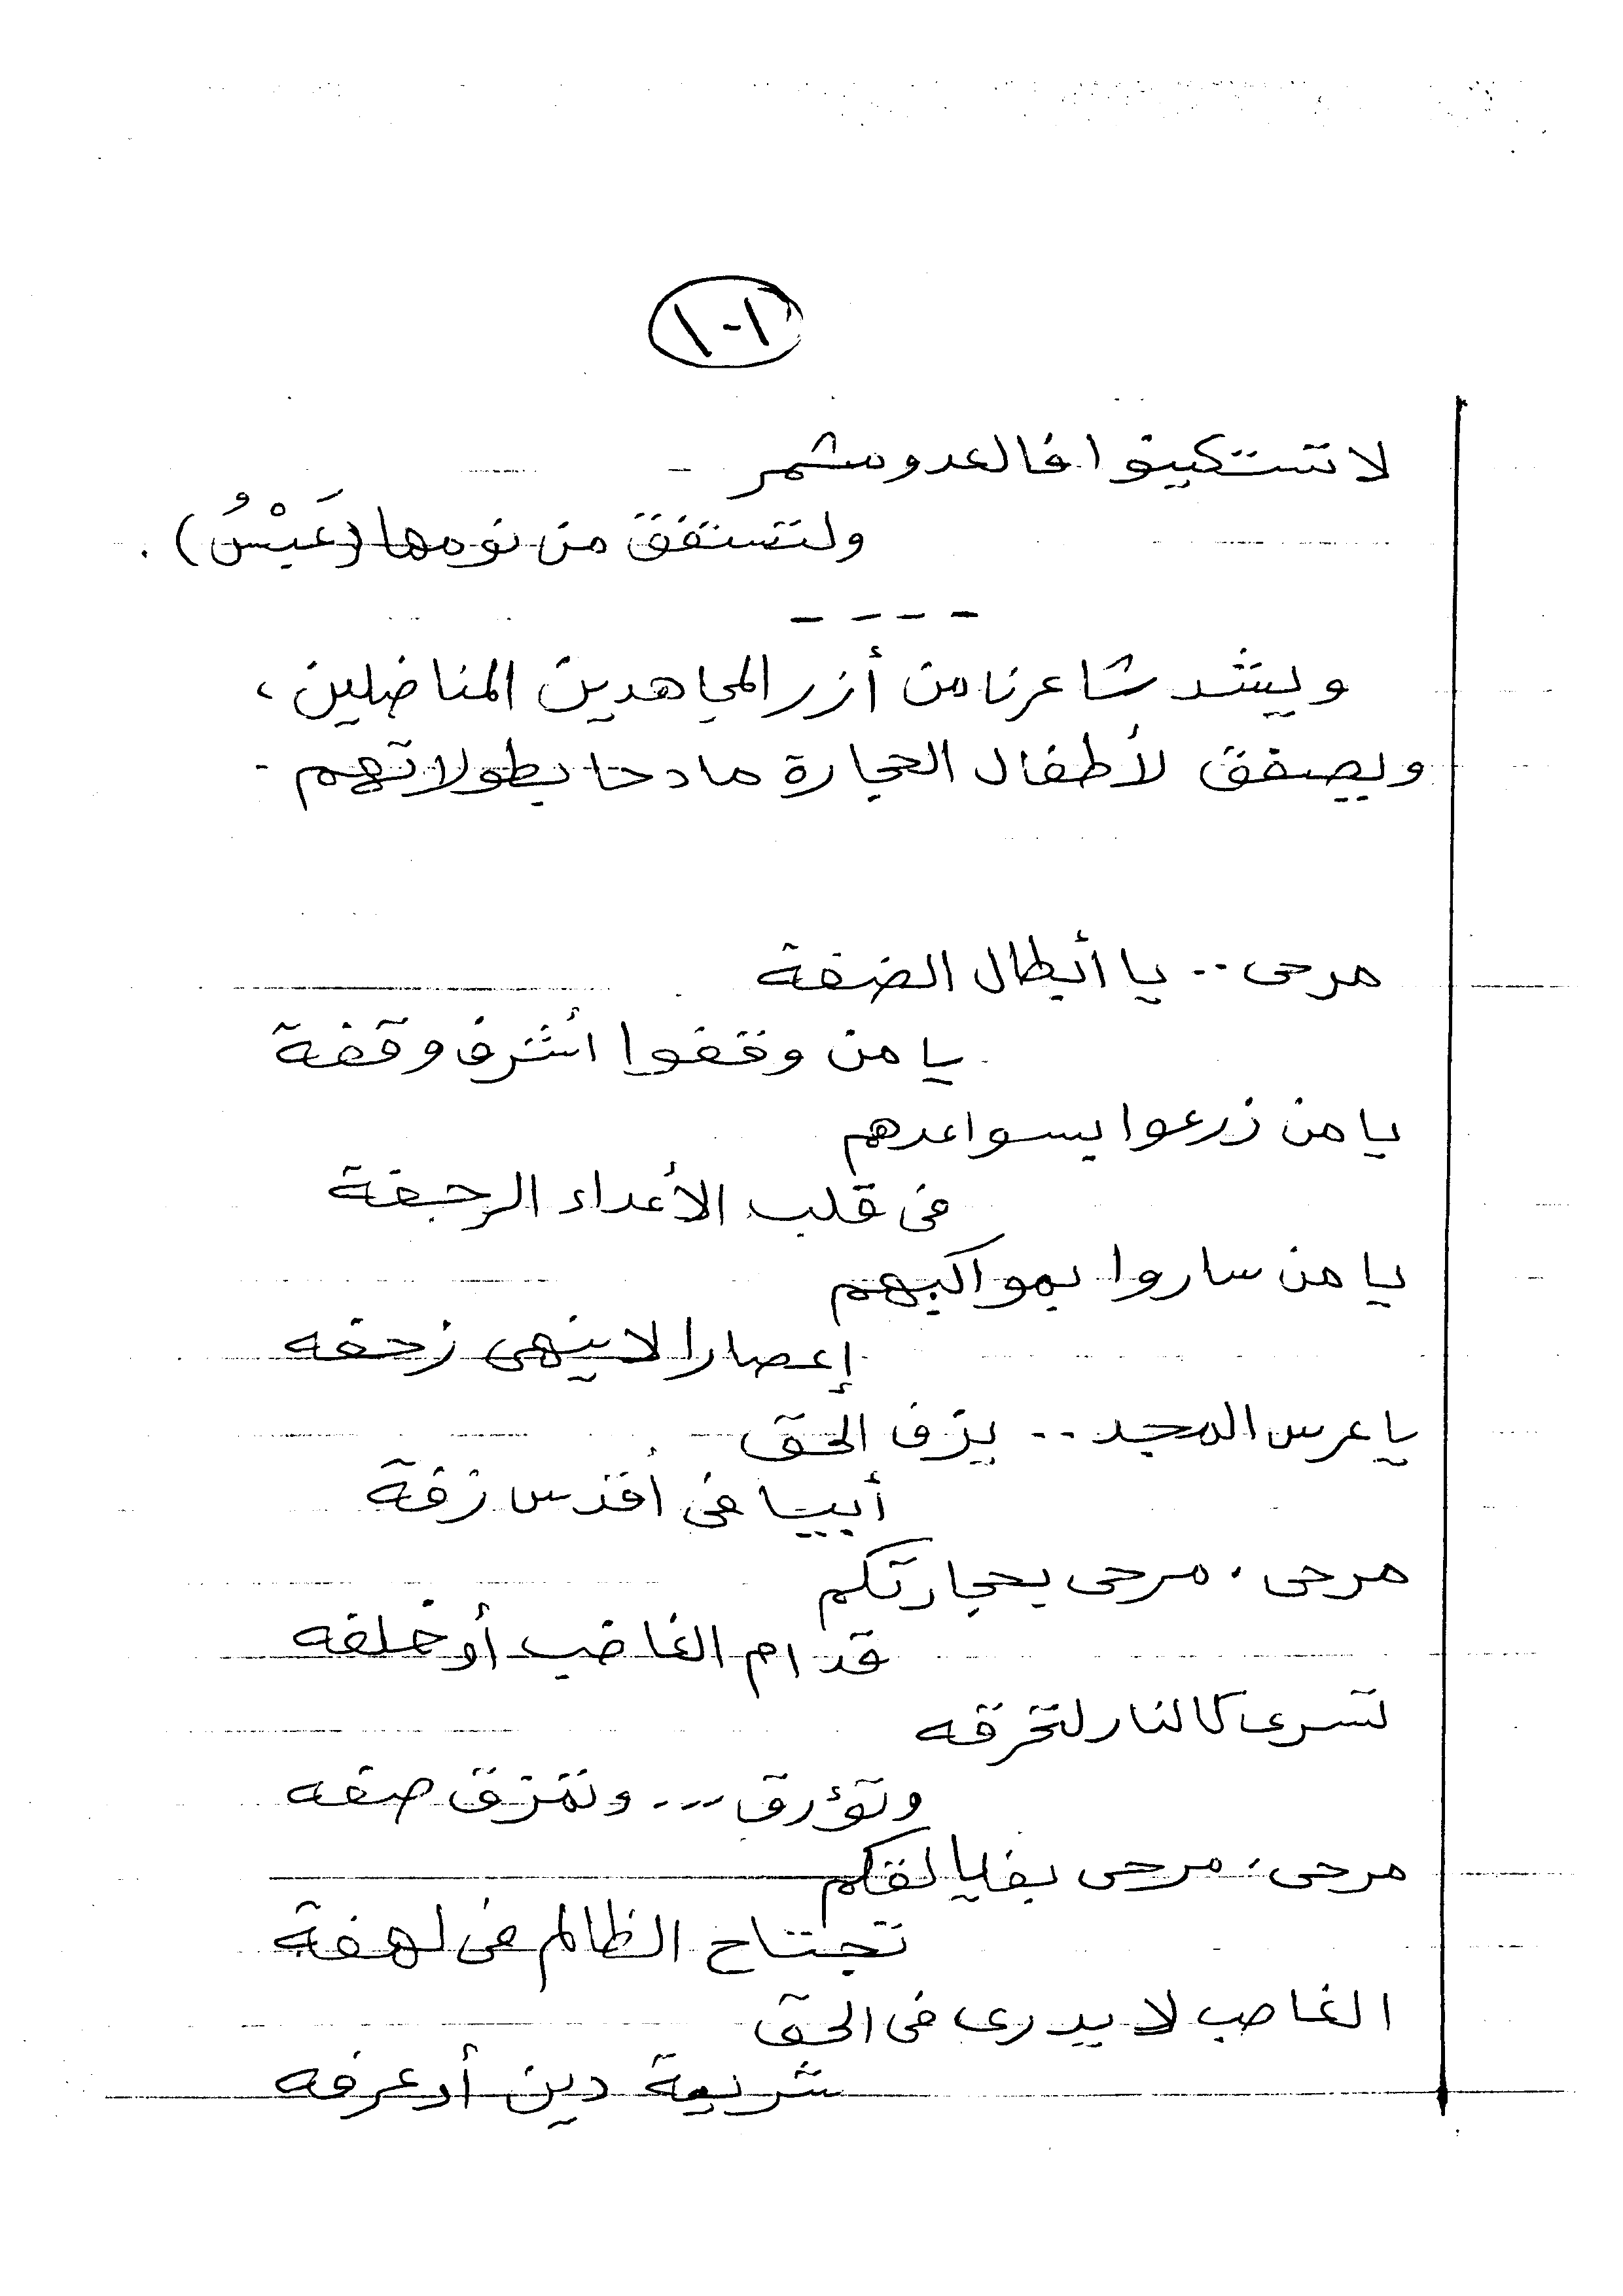 ١٠١
لا تستكينوا فالعدو مشمر
ولتستفق من نومها (عَبْسُ) .
ويشد شاعرنا من أزر المجاهدين المناضلين ،
ويصفق لأطفال الحجارة مادحا بطولاتهم .
مرحى .. يا أبطال الضفة
يا من وقفوا أشرف وقفة
يا من زرعوا بسواعدهم
فى قلب الأعداء الرجفة
يا من ساروا بمواكبهم
إعصارا لا ينهى زحفه
يا عرس المجد .. يزف الحق
أبيا فى أقدس زفة
مرحى . مرحى بحجارتكم
قدام الغاضب أو خلفه
تسرى كالنار لتحرقه
وتؤرق ... وتمزق صفه
مرحى . مرحى بفيالقكم
تجتاح الظالم فى لهفة
الغاصب لا يدرى فى الحق
شريعة دين أو عرفه